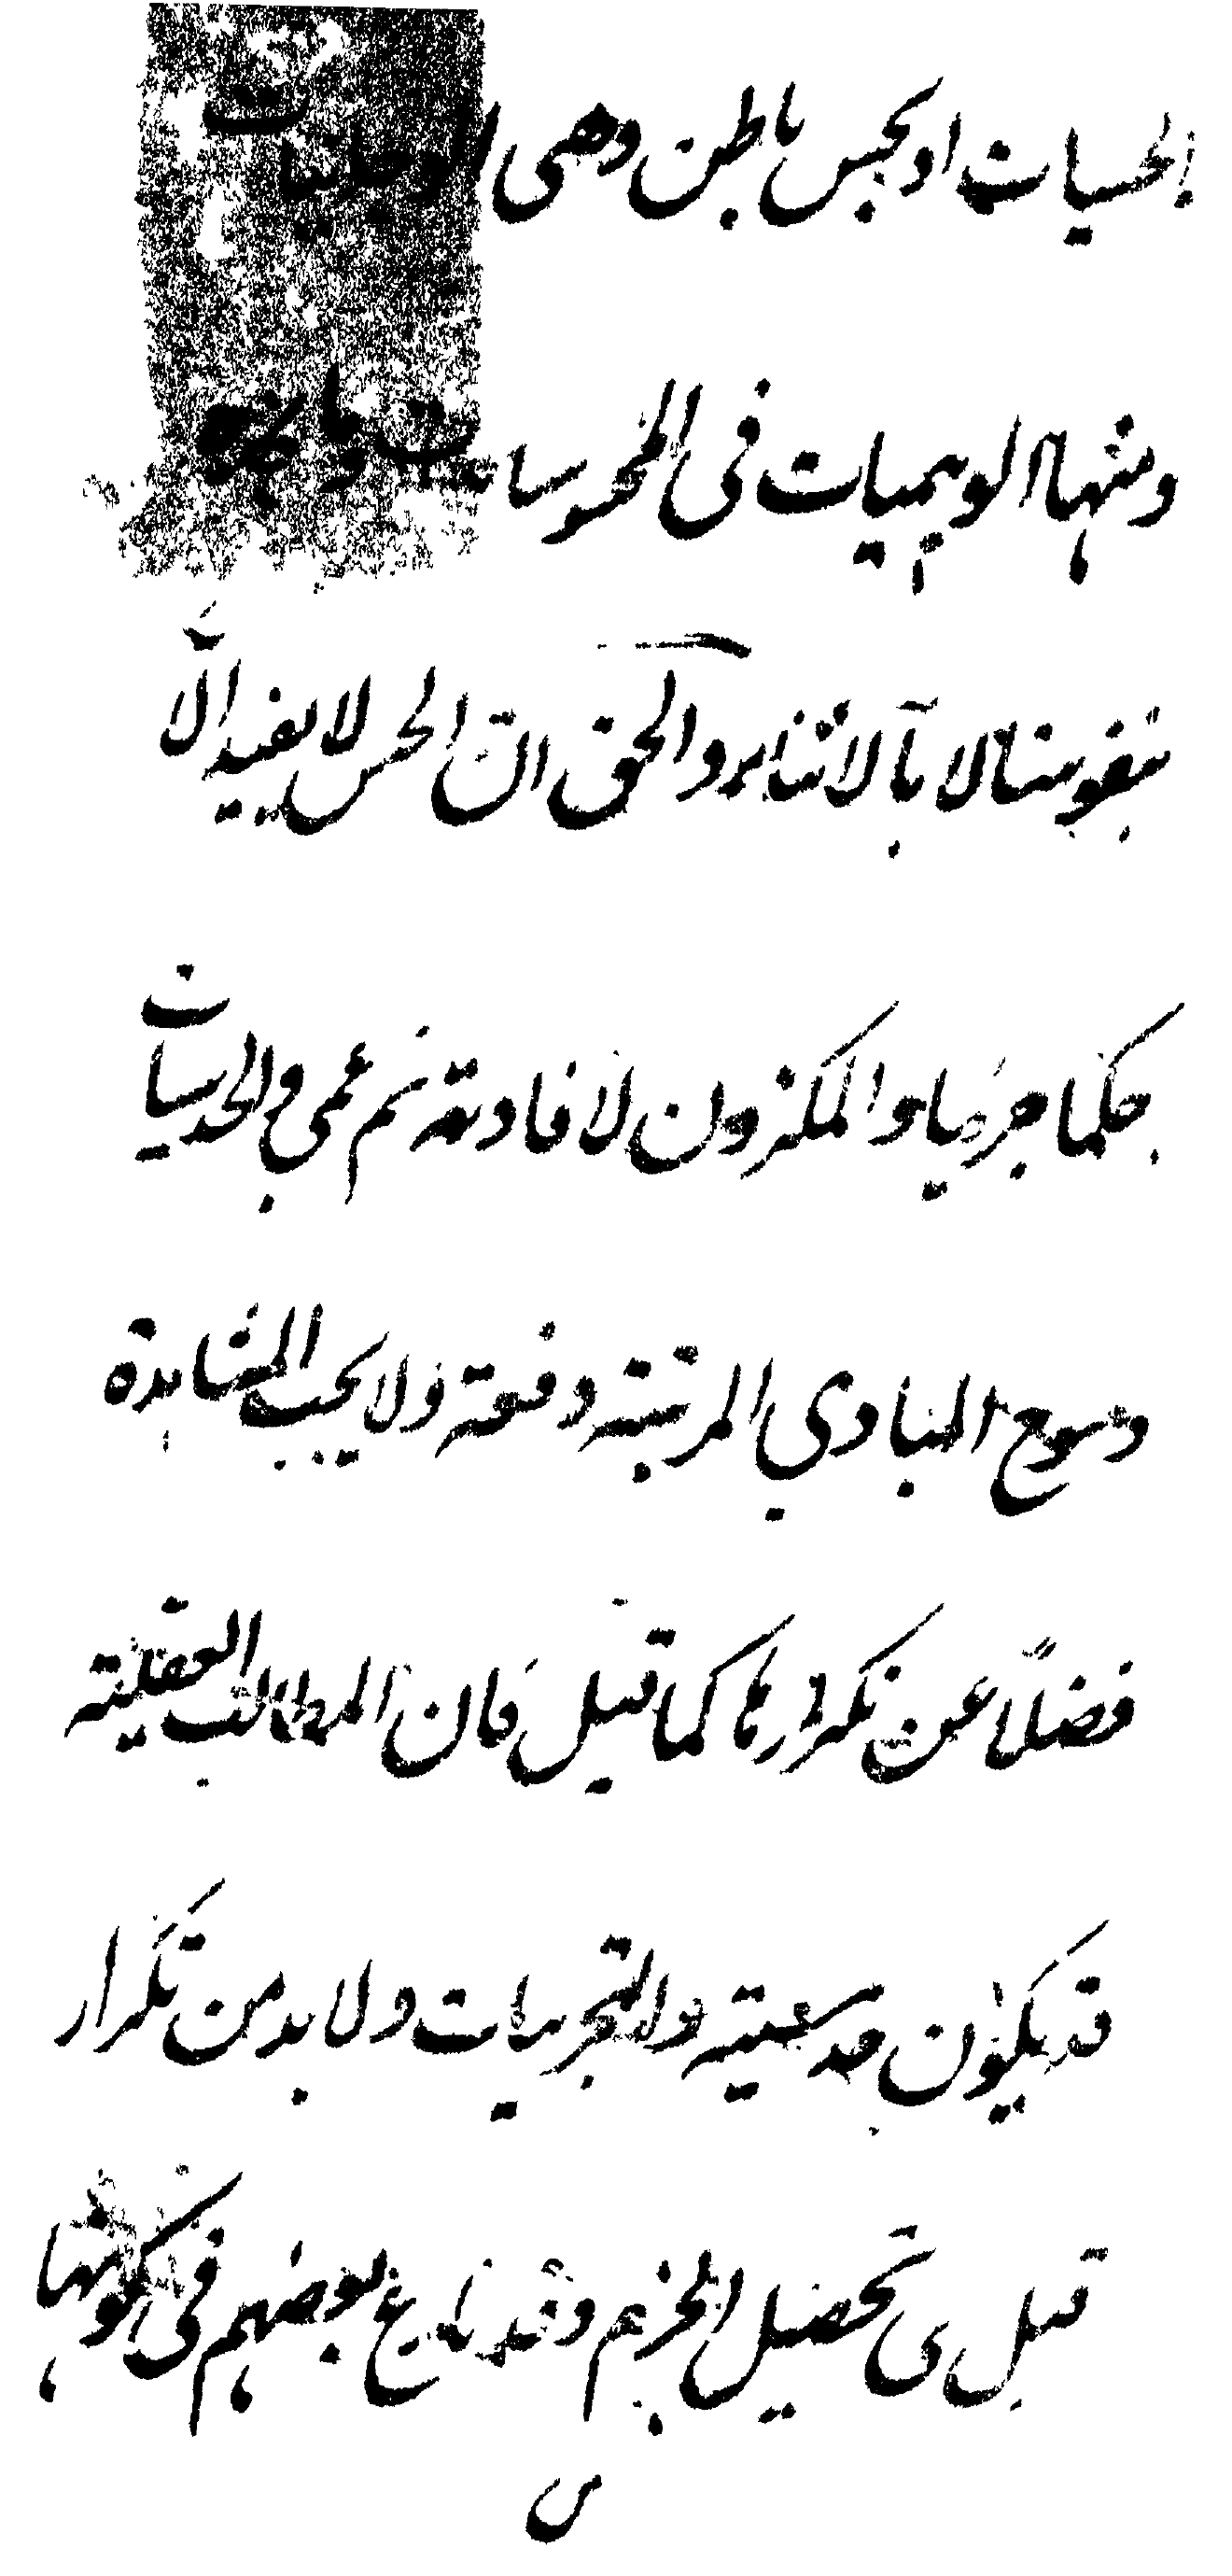 الحسيات او بحس باطن وهى الوجدانيات
ومنها الوهميات فى المحسوسات وما نجده
بنفوسنا لا بآلاتنا والحق ان الحس لا يفيد الّا
حكما جزئيا والمنكرون لافادته نعم عمى والحدسيات
وسنوح المبادي المرتبة دفعة ولا يجب المشاهدة
فضلاً عن تكرارها كما قيل فان المطالب العقلية
قد يكون حدسية والتجربيات ولا بد من تكرار
فعل تحصيل الجزم وقد نازع بعضهم فى كونها